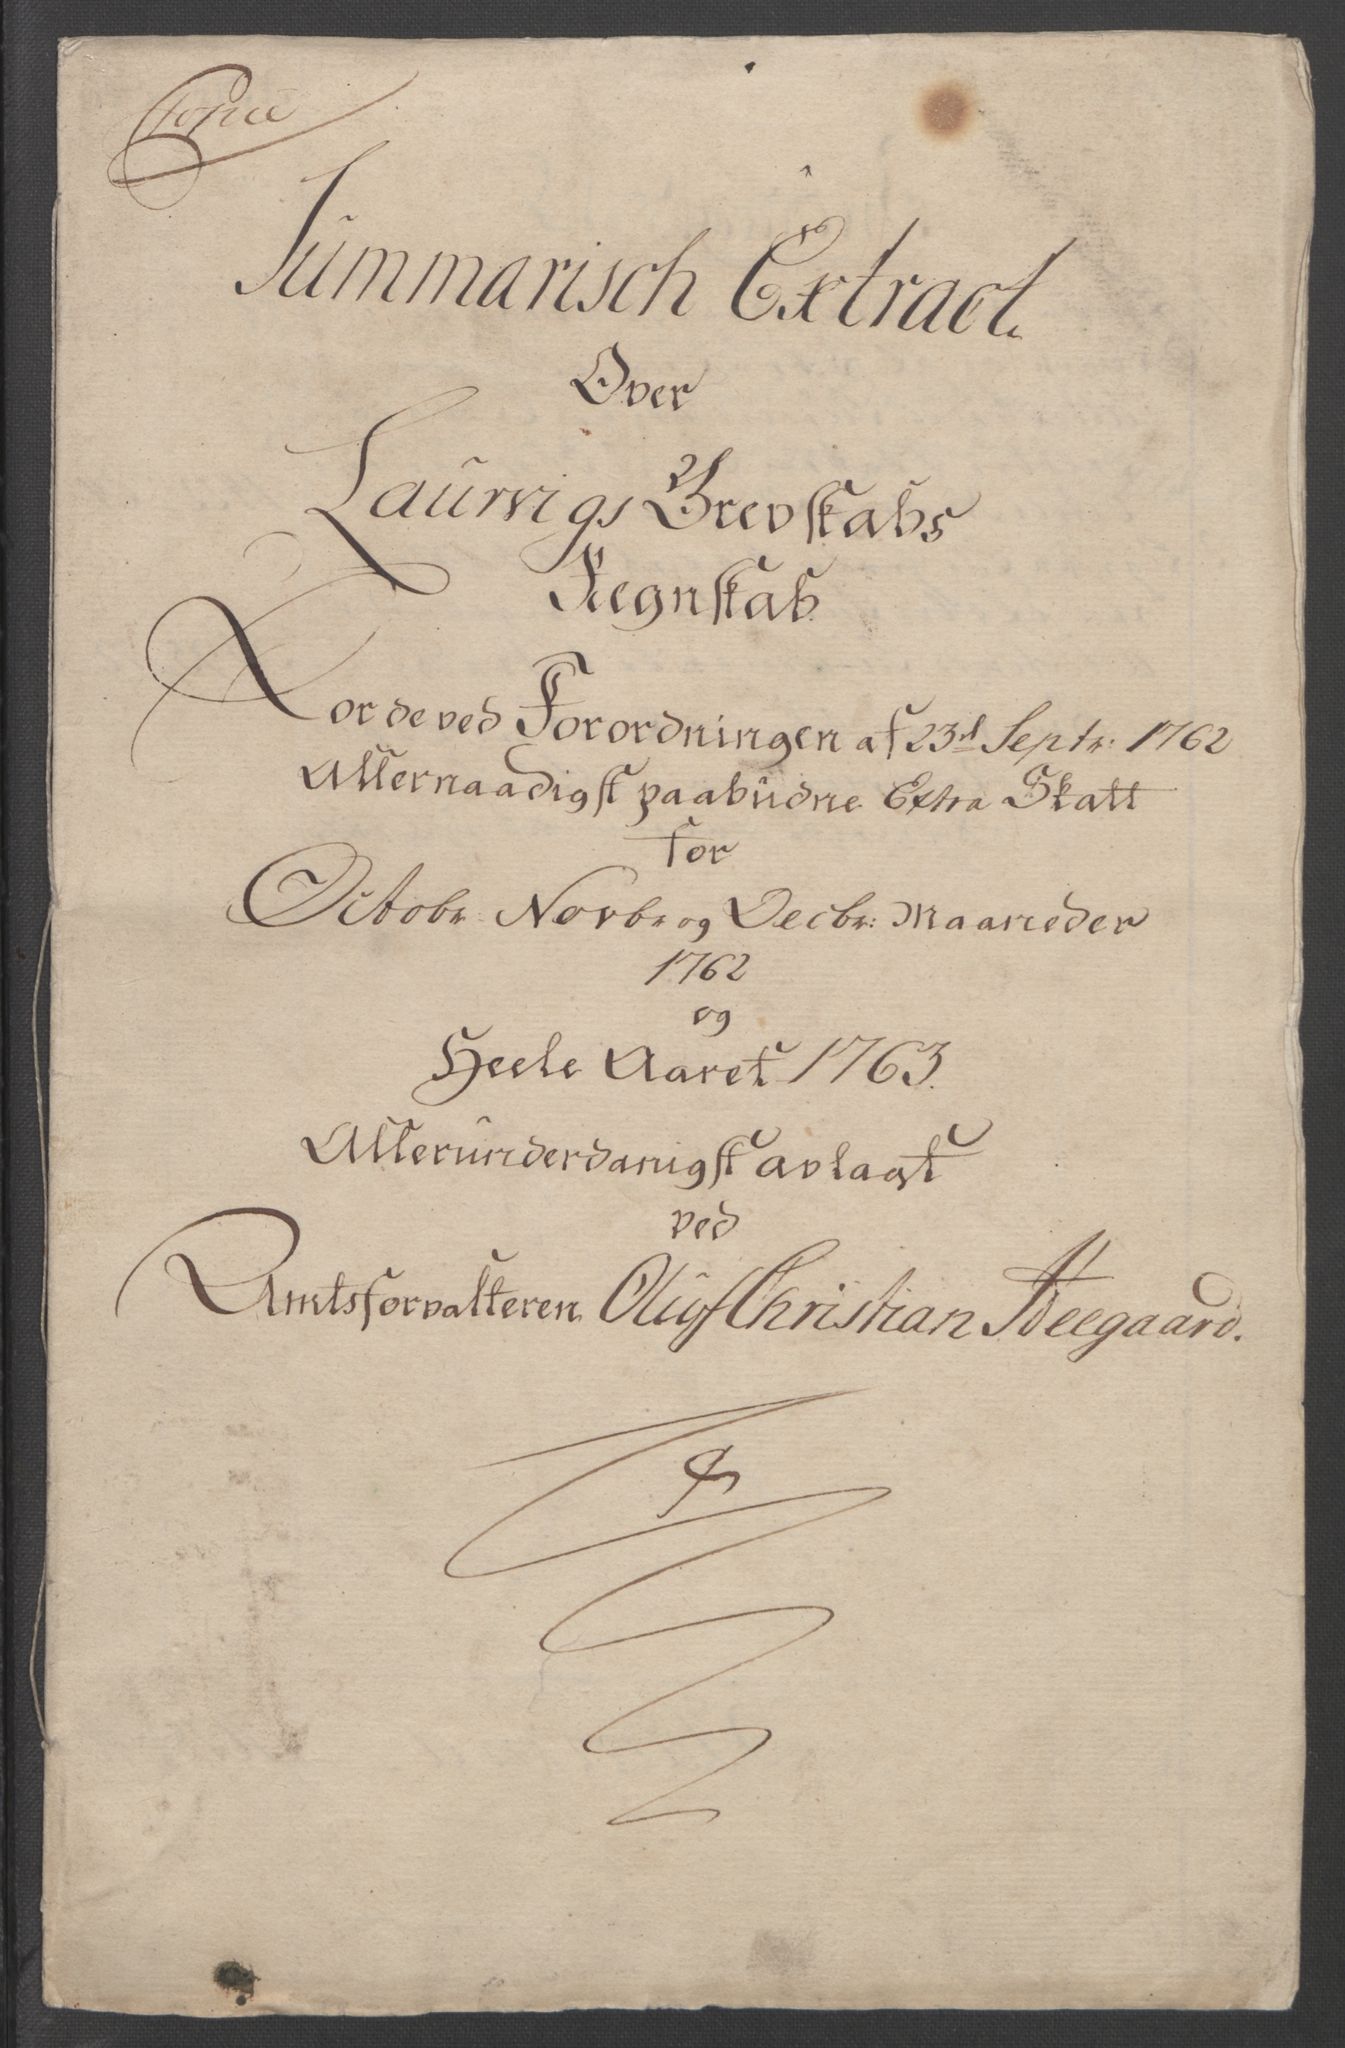 Copiæ
Summarisch Extract
Over
Laurvigs Grevskabs
Regnskab
For de ved Forordningen af 23d Septr: 1762
Allernaadigst paabudne Extra Skatt
for
Octobr: Novbr og Decbr: Maaneder
1762
og
Heele Aaret 1763
Allerunderdanigst avlagt
ved
Amtsforvalteren Oluf Christian